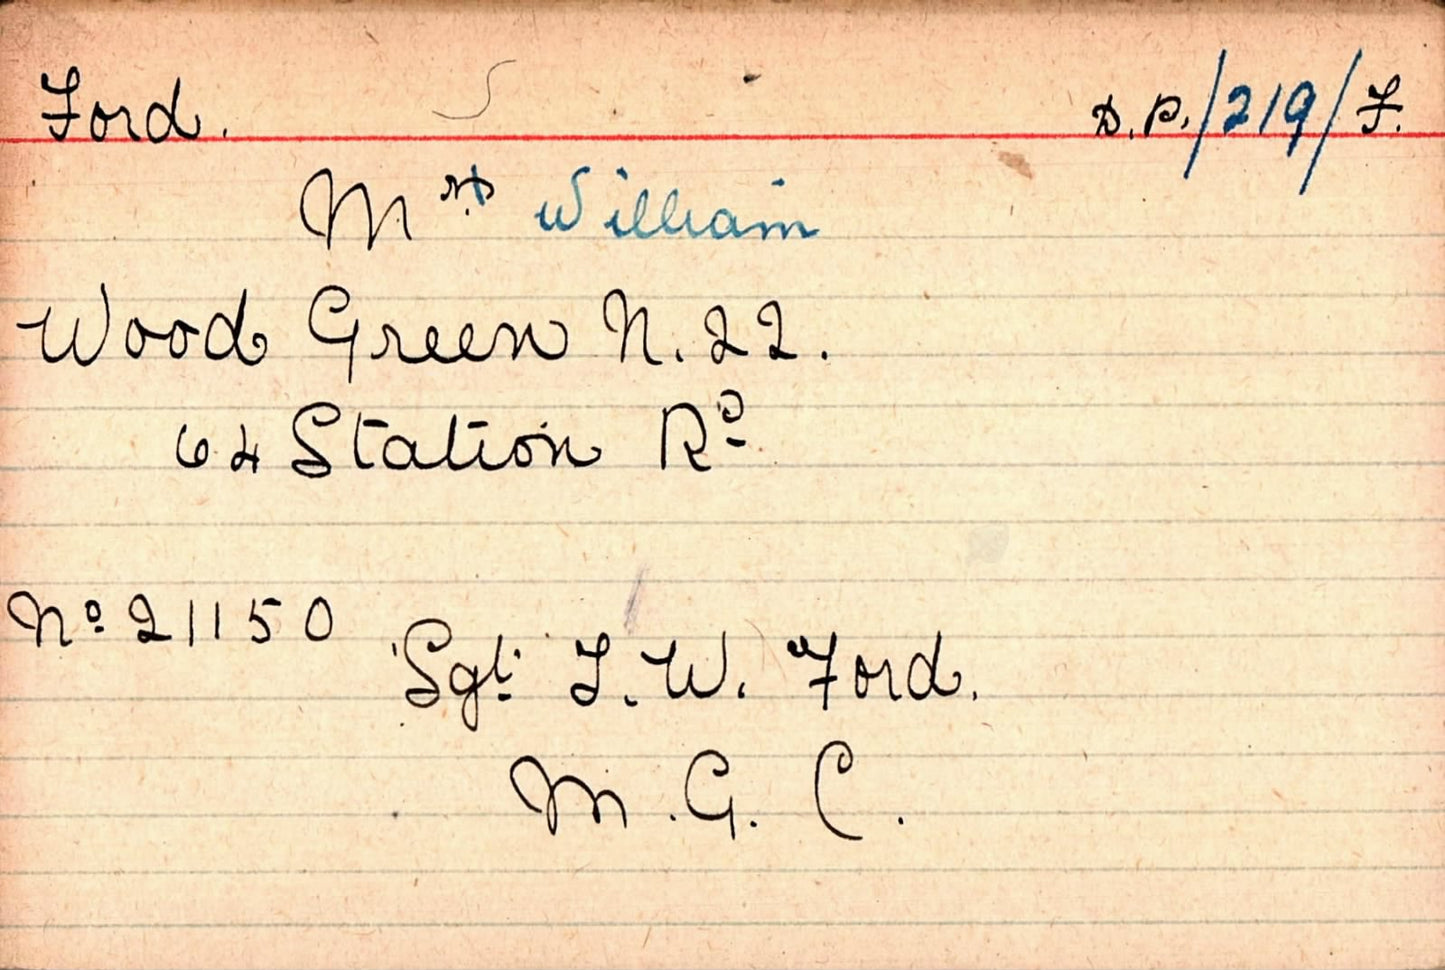 Ford. D.P./219/F.
Mrs William
Wood Green N.22.
64 Station Rd
No 21150
Sgt. L.W. Ford.
M.G.C.